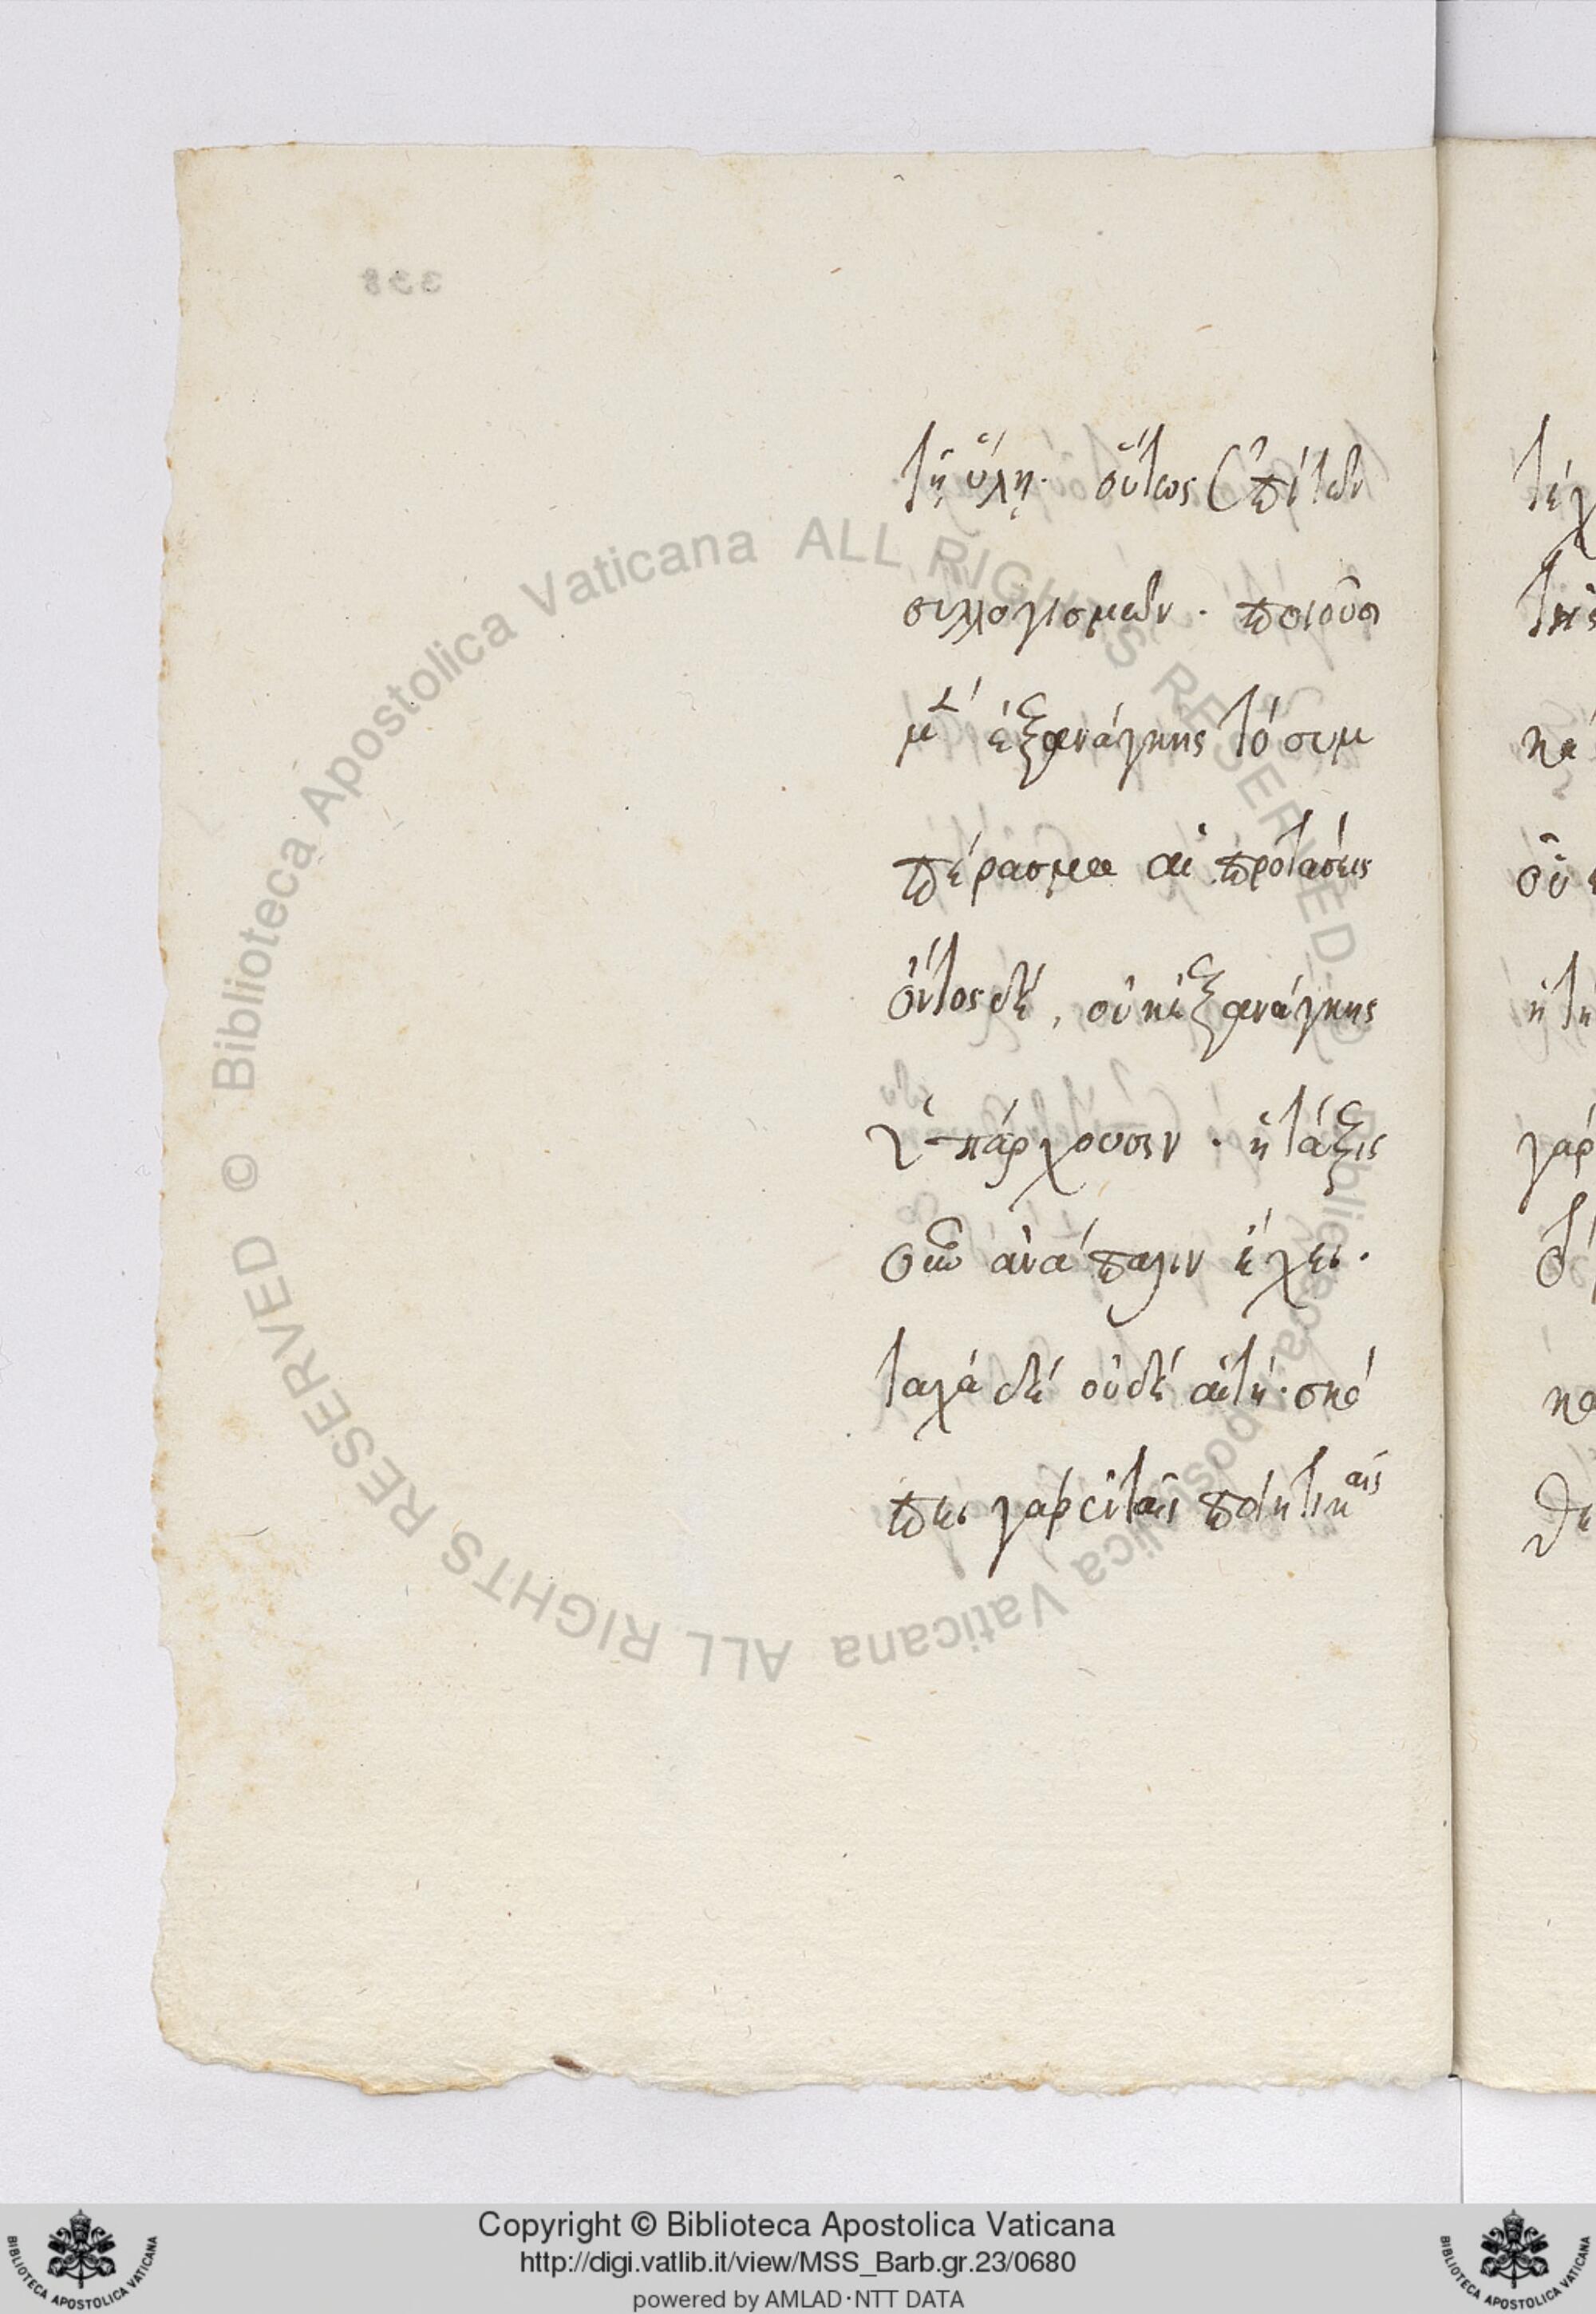 τῆ ὕλη· οὕτως ἐπὶ τῶν
συλλογισμῶν· ποιοῦσι
μὲν ἐξ ἀνάγκης τὸ συμ
πέρασμα αἱ προτάσεις
ὄντος δὲ, οὐκ ἐξ ἀνάγκης
ὑπάρχουσιν· ἡ τάξις
οὖν ἀνάπαλιν ἔχει·
ταχὰ δὲ οὐδὲ αὐτὴ· σκό
πει γὰρ ἐν ταῖς ποιητικαῖς
© Biblioteca Apostolica Vaticana ALL RIGHTS RESERVED © Biblioteca Apostolica Vaticana ALL RIGHTS RESERVED
Copyright © Biblioteca Apostolica Vaticana
http://digi.vatlib.it/view/MSS_Barb.gr.23/0680
powered by AMLAD·NTT DATA
BIBLIOTECA APOSTOLICA VATICANA
BIBLIOTECA APOSTOLICA VATICANA